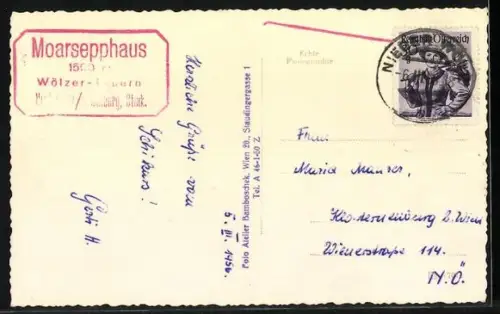 Moarsepphaus
1500 m
Wölzer-Tauern
Stmk.
Herzliche Grüße vom
Schikurs!
Gerti H.
5. III. 1956.
Foto Atelier Ramboschek, Wien 20., Staudingergasse 1
Tel. A 46-1-60 Z
Echte
Photographie
Republik Österreich
Frau
Maria Mauser,
Klosterneuburg b. Wien
Wienerstraße 114.
N.Ö.